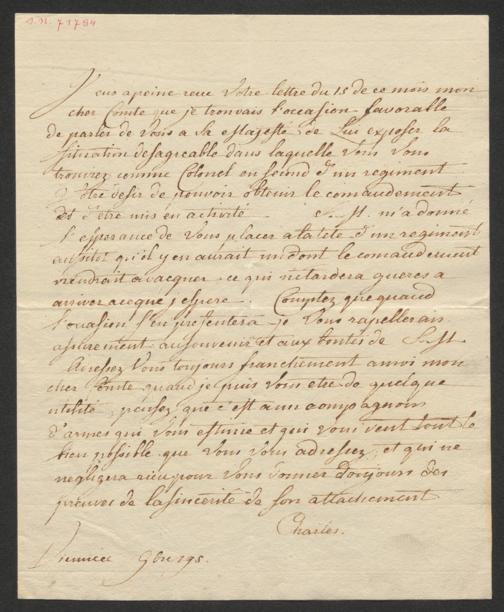 J.N. 71794
J'eus apeine recu Votre lettre du 15 de ce mois mon
cher Comte que je trouvais l'occasion favorable
de parler de Vous a Sa Majesté, de Lui exposer la
situation desagreable dans laquelle Vous Vous
trouvez comme Colonel en second d'un regiment
Votre desir de pouvoir obtenir le comandement
et d'être mis en activité. S. M. m'a donné
l'esperance de Vous placer a la tete d'un regiment
ausitot qu'il y en aurait un dont le comandement
viendrait a vacquer - ce qui ne tardera gueres a
arriver a ce que j'espere. Comptez que quand
l'occasion s'en presentera je Vous rapellerais
assurement au souvenir et aux bontés de S. M.
Adressez Vous toujours franchement a moi mon
cher Comte quand je puis Vous etre de quelque
utilité, pensez que c'est a un compagnon
d'armes qui Vous estime et qui Vous veut tout le
bien possible que Vous Vous adressez, et qui ne
negligera rien pour Vous donner toujours des
preuves de la sincerité de son attachement
Charles.
Vienne 9bre 795.